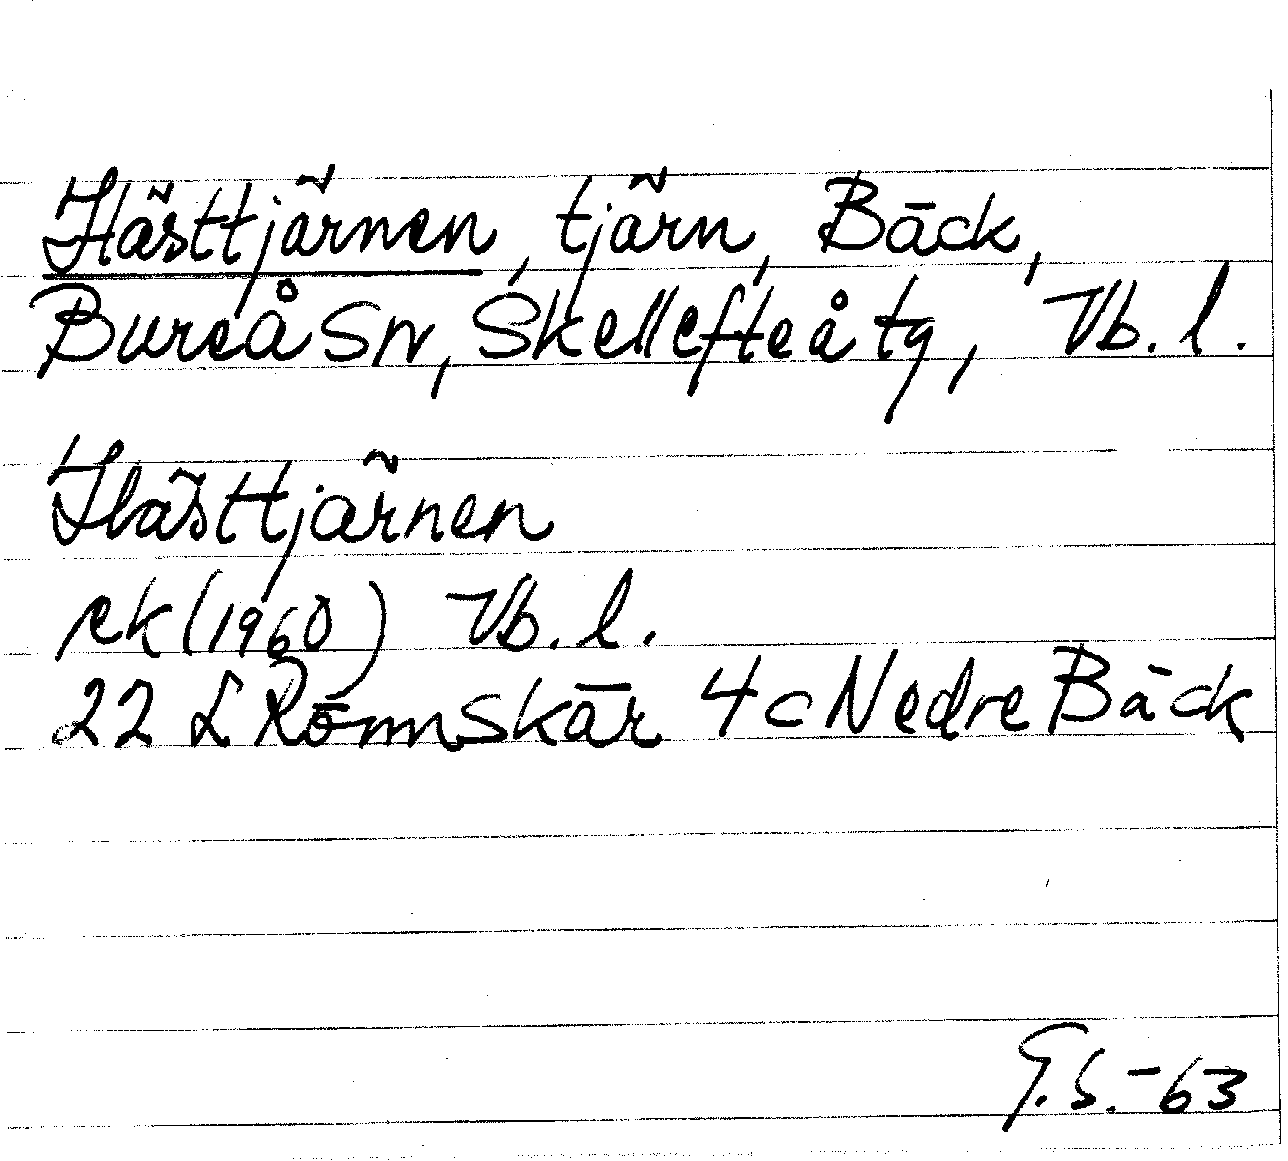 Hästtjärnen, tjärn, Bäck,
Bureå sn, Skellefteå tg, Vb. l.
Hästtjärnen
rk (1960) Vb. l.
22 L Rönnskär 4c Nedre Bäck
G.S.-63